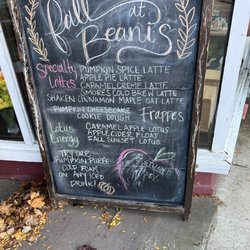 fall at
Beani's
Specialty PUMPKIN SPICE LATTE
Lattes APPLE PIE LATTE
CARAMEL CREME LATTE
S'MORES COLD BREW LATTE
SHAKEN CINNAMON MAPLE OAT LATTE
PUMPKIN CHEESECAKE Frappes
COOKIE DOUGH
Lotus CARAMEL APPLE LOTUS
Energy APPLE CIDER FLOAT
FALL SUNSET LOTUS
TRY OUR
PUMPKIN PURÉE
COLD FOAM
ON ANY OF
DRINK!